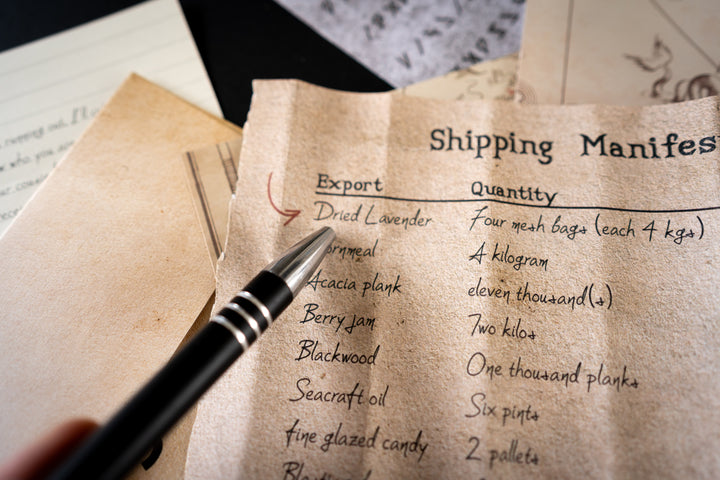 Shipping Manifes
Export Quantity
Dried Lavender Four mesh bags (each 4 kgs)
ornmeal A kilogram
Acacia plank eleven thousand(s)
Berry jam Two kilos
Blackwood One thousand planks
Seacraft oil Six pints
fine glazed candy 2 pallets